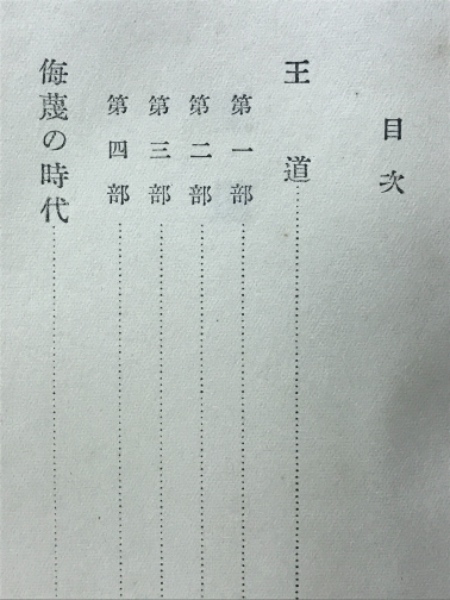 目次
王道
第一部
第二部
第三部
第四部
侮蔑の時代